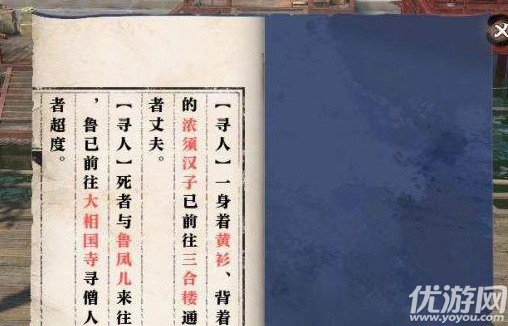 【寻人】一身着黄衫、背着
的浓须汉子已前往三合楼通
者丈夫。
【寻人】死者与鲁凤儿来往
，鲁已前往大相国寺寻僧人
者超度。
优游网
www.yoyou.com